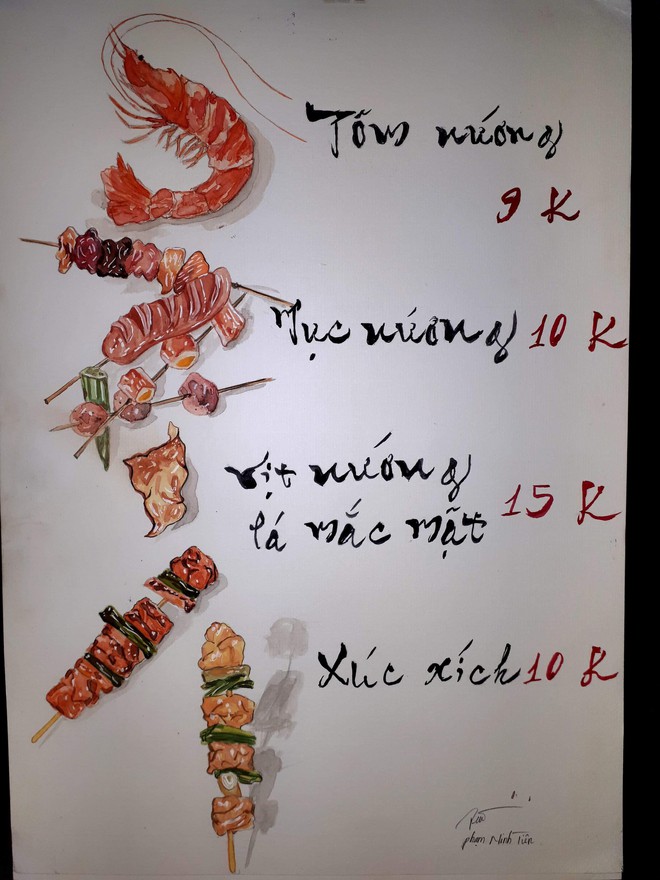 Tôm nướng
9 K
Mực nướng 10 K
Vịt nướng
lá mắc mật 15 K
Xúc xích 10 K
phạm Minh Tiên